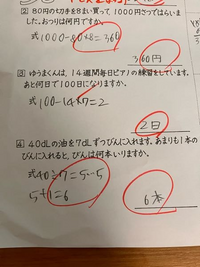 ② 80円の切手を8まい買って1000円さつではらいま
した。おつりは何円ですか。
式 1000-80×8=360
360円
③ ゆうまくんは、14週間毎日ピアノの練習をしています。
あと何日で100日になりますか。
式 100-14×7=2
2日
④ 40dLの油を7dLずつびんに入れます。あまりも1本の
びんに入れると、びんは何本いりますか。
式 40÷7=5…5
5+1=6
6本